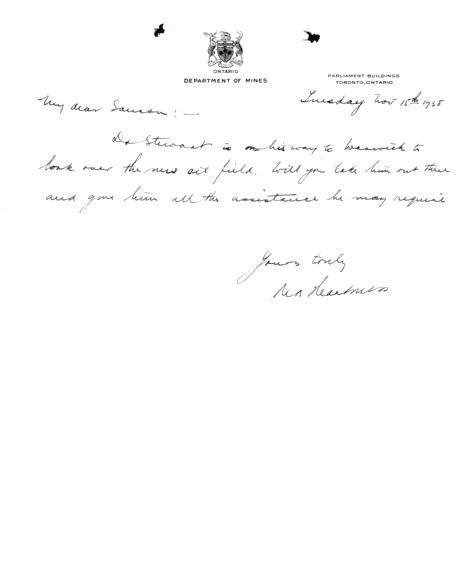 ONTARIO
DEPARTMENT OF MINES
PARLIAMENT BUILDINGS
TORONTO, ONTARIO
Tuesday Nov 15th 1938
My dear Sanson: —
Dr Stewart is on his way to Warwick to
look over the new oil field. Will you take him out there
and give him all the assistance he may require
Yours truly
Harkness